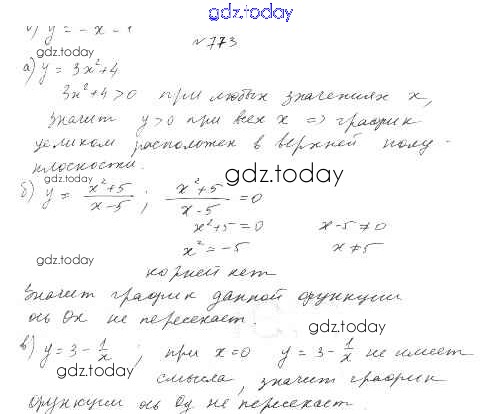 gdz.today
y = - x -
№ 773
gdz.today
а) y = 3x²+4
3x²+4>0 при любых значениях x,
gdz.today
значит y>0 при всех x => график
целиком расположен в верхней полу-
плоскости.
gdz.today
gdz.today
б) y = x²+5 / x-5 ; x²+5 / x-5 = 0
x²+5=0 x-5≠0
x²=-5 x≠5
gdz.today
корней нет
значит график данной функции
ось Ox не пересекает.
gdz.today
в) y = 3 - 1/x ; при x=0 y = 3 - 1/x не имеет
gdz.today
смысла, значит график
функции ось Oy не пересекает.
gdz.today
gdz.today